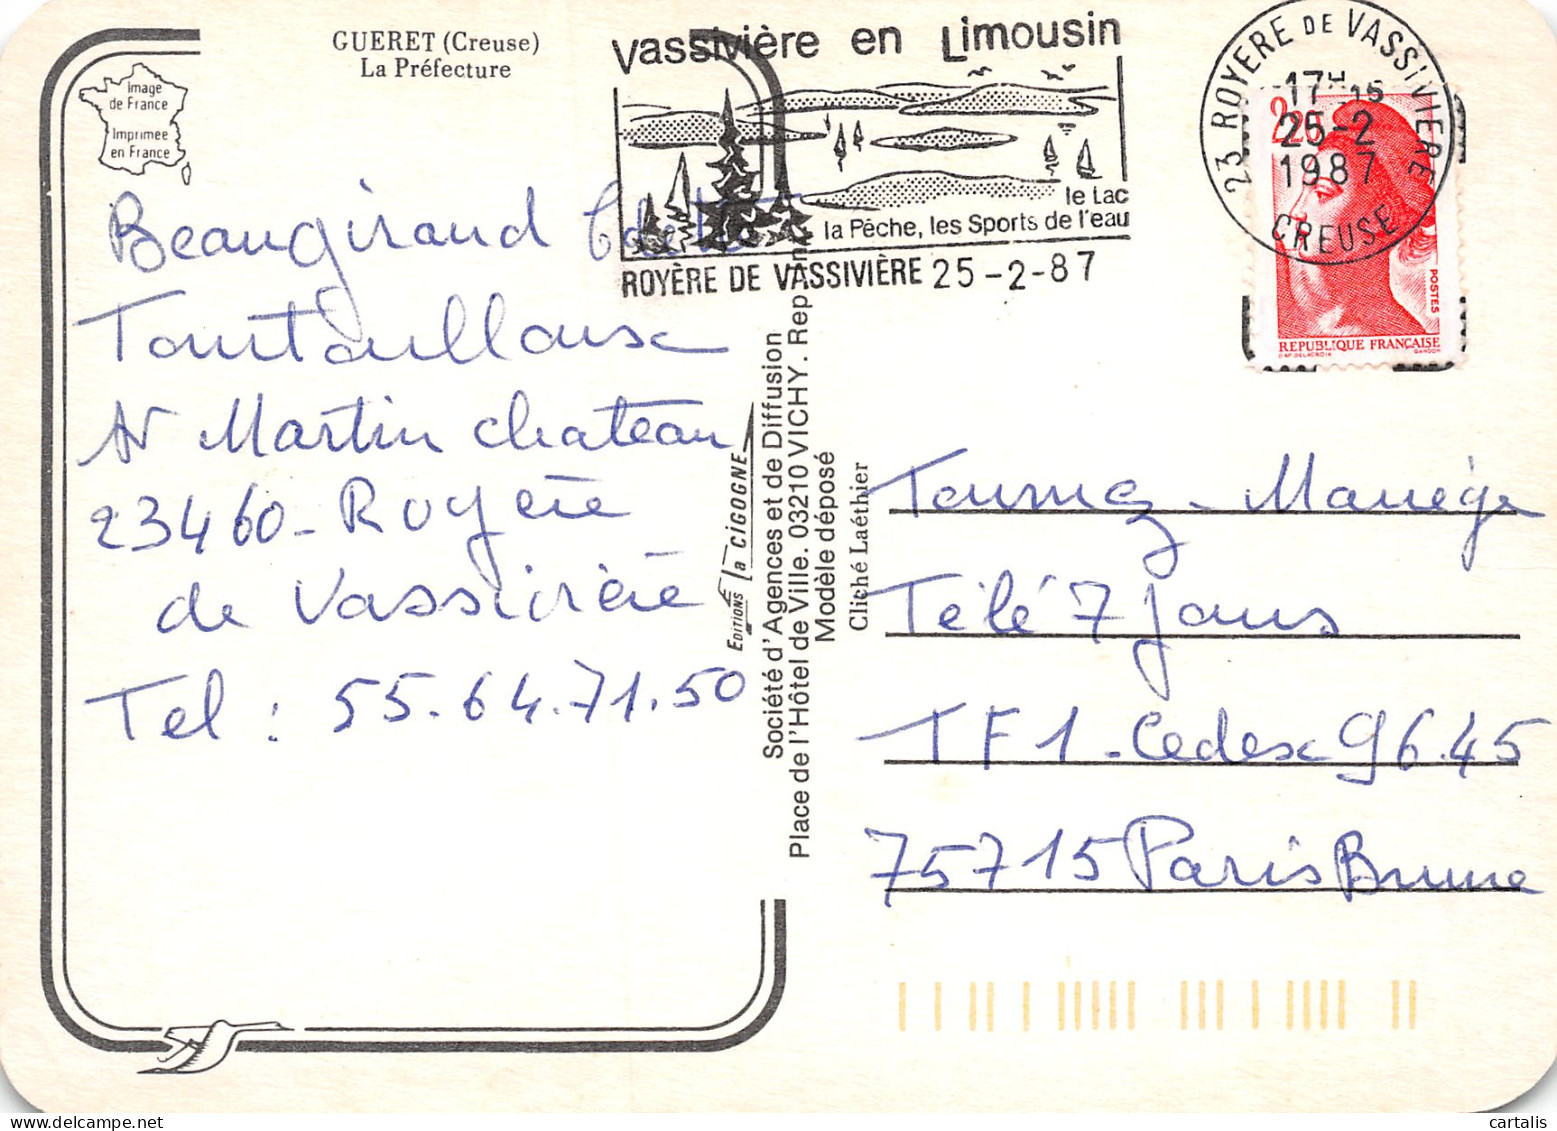 GUERET (Creuse)
La Préfecture
Image
de France
Imprimée
en France
Vassivière en Limousin
le Lac
la Pêche, les Sports de l'eau
ROYÈRE DE VASSIVIÈRE 25-2-87
23 ROYERE DE VASSIVIERE
17H 15
25-2
1987
CREUSE
2,20
POSTES
REPUBLIQUE FRANÇAISE
D'AP. DELACROIX GANDON
Beaugiraud
Tourtoulloux
Martin chateau
23460 - Royère
de Vassivière
Tel : 55.64.71.50
EDITIONS la CIGOGNE
Société d'Agences et de Diffusion
Place de l'Hôtel de Ville. 03210 VICHY. Rep
Modèle déposé
Cliché Laéthier
Tournez - Manège
Télé 7 jours
TF1 - Cedex 96.45
75715 Paris Brune
cartalis